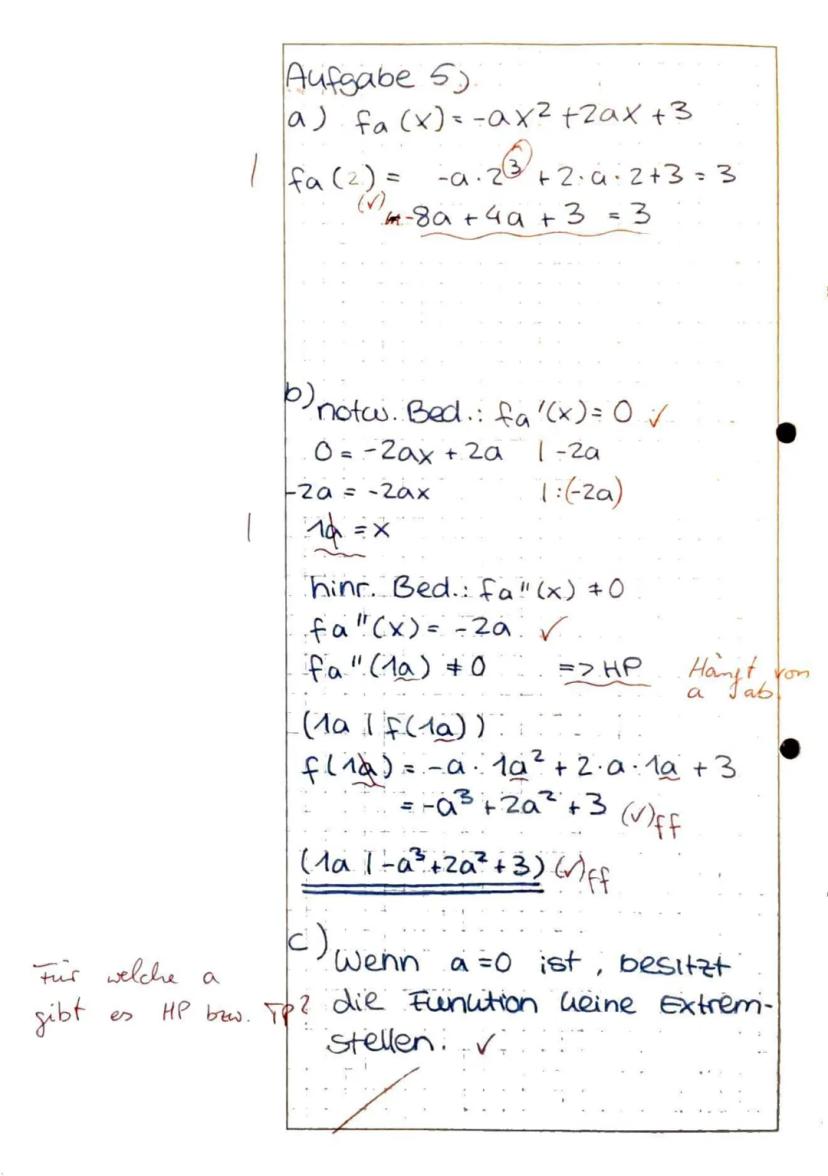 Aufgabe 5)
a) fa (x) = -ax² + 2ax + 3
| fa (2) = -a · 2³ + 2 · a · 2 + 3 = 3
(✓) -8a + 4a + 3 = 3
b) notw. Bed.: fa'(x) = 0 ✓
0 = -2ax + 2a | -2a
-2a = -2ax | :(-2a)
| 1a = x
hinr. Bed.: fa''(x) ≠ 0
fa''(x) = -2a ✓
fa''(1a) ≠ 0 => HP Hängt von
a ab.
(1a | f(1a))
f(1a) = -a · 1a² + 2 · a · 1a + 3
= -a³ + 2a² + 3 (✓)ff
(1a | -a³ + 2a² + 3) (✓)ff
c) Wenn a = 0 ist, besitzt
die Funktion keine Extrem-
stellen. ✓
Für welche a
gibt es HP bzw. TP?